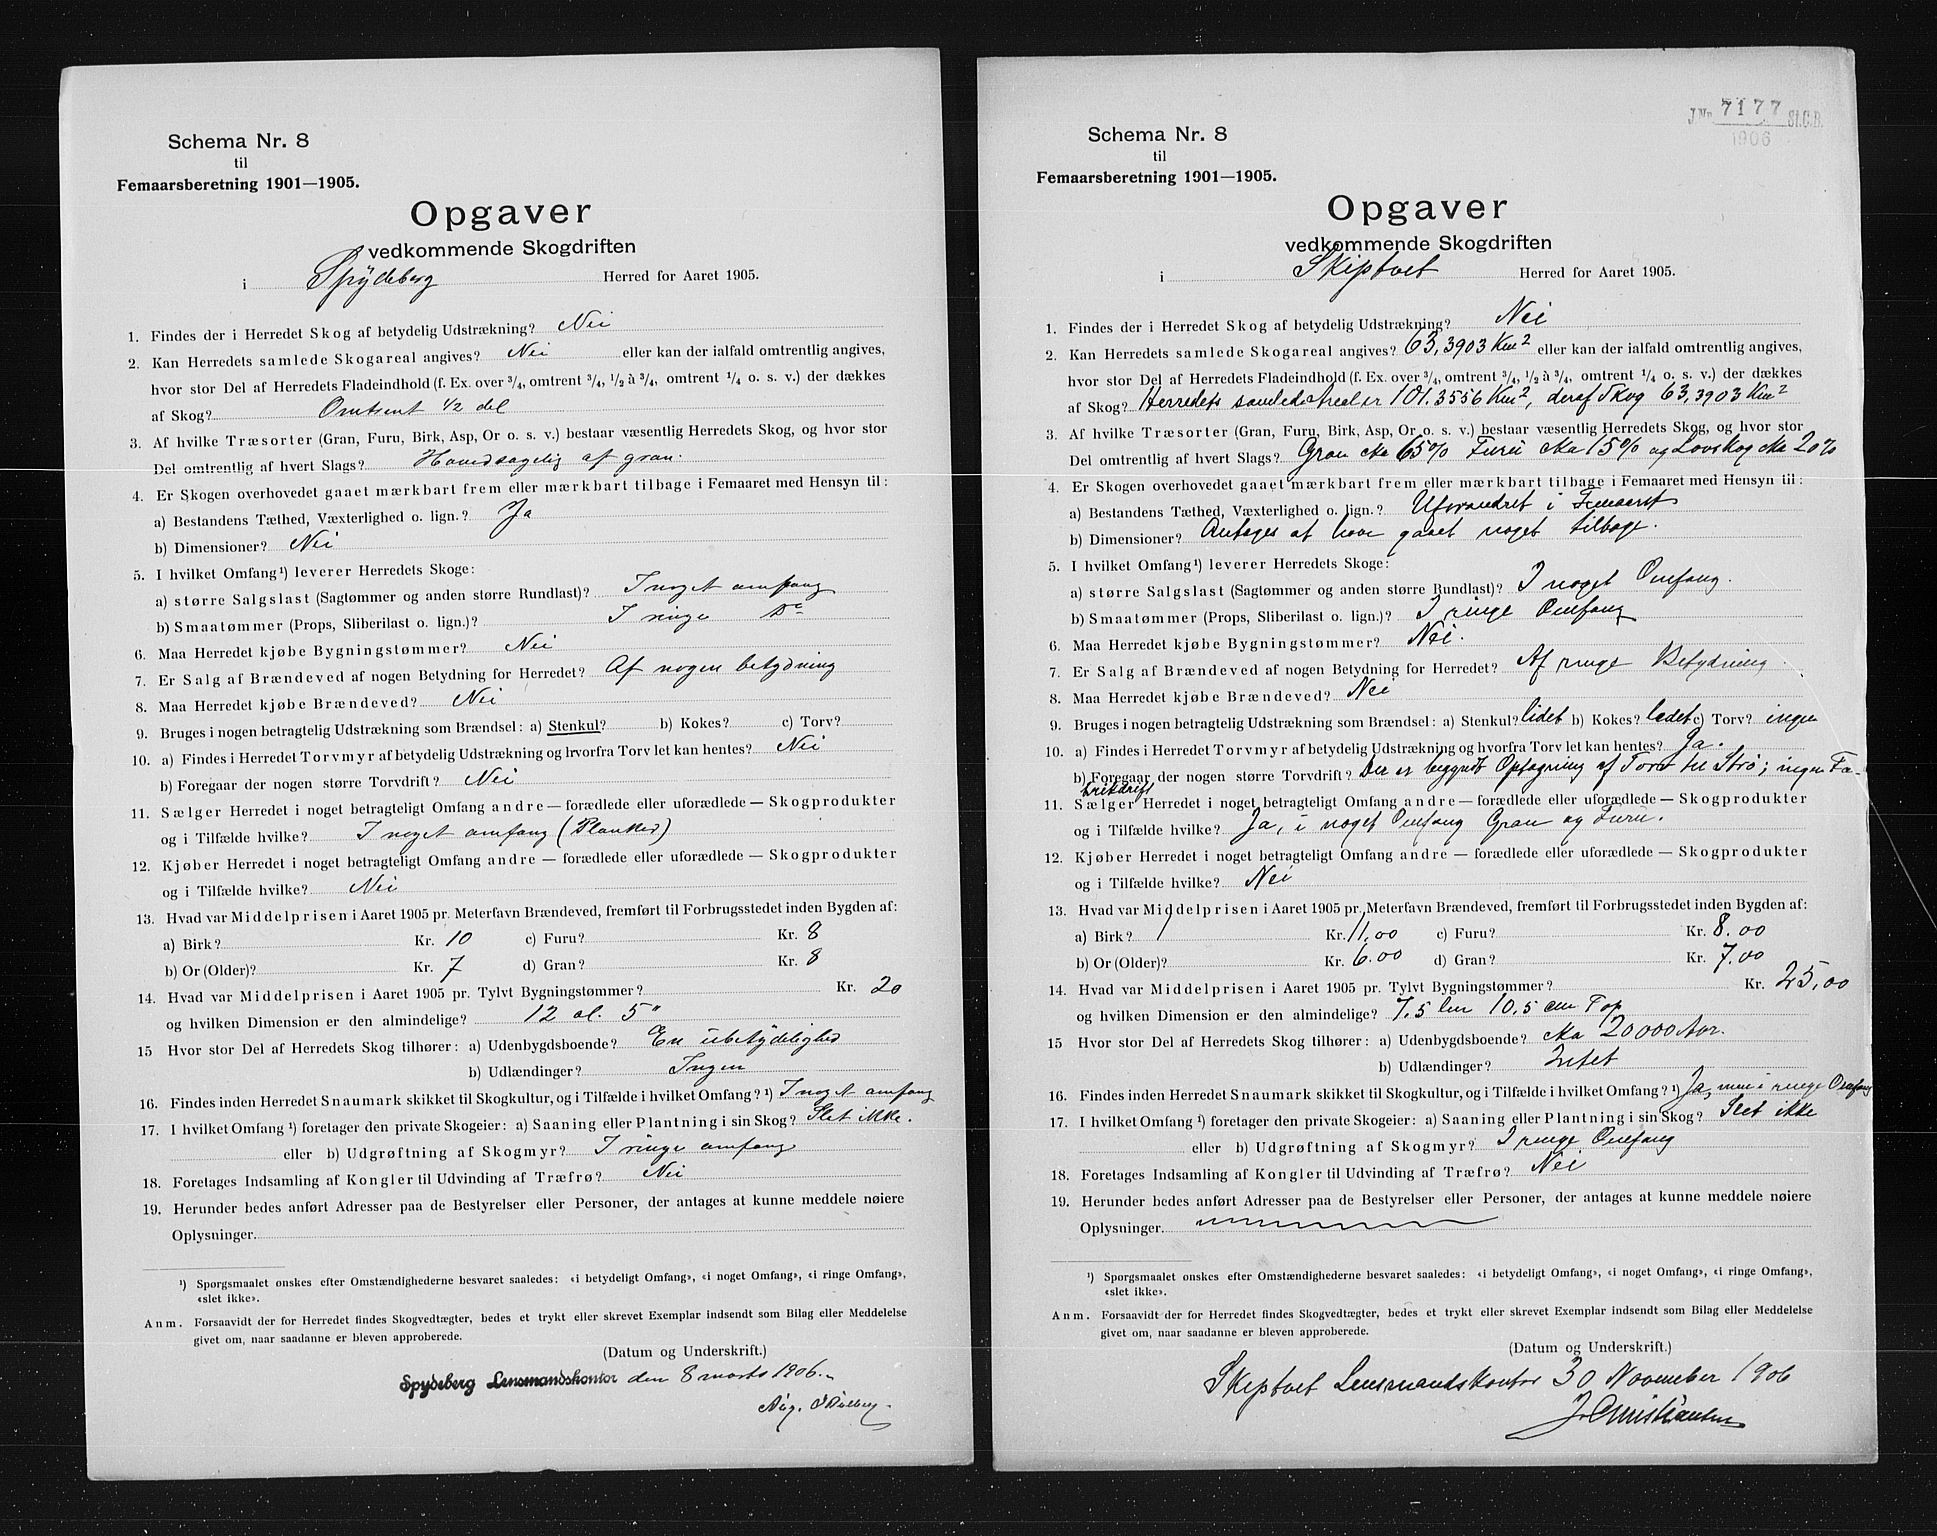 Schema Nr. 8
til
Femaarsberetning 1901—1905.
Opgaver
vedkommende Skogdriften
i Spydeberg Herred for Aaret 1905.
1. Findes der i Herredet Skog af betydelig Udstrækning? Nei
2. Kan Herredets samlede Skogareal angives? Nei eller kan der ialfald omtrentlig angives,
hvor stor Del af Herredets Fladeindhold (f. Ex. over 3/4, omtrent 3/4, 1/2 à 3/4, omtrent 1/4 o. s. v.) der dækkes
af Skog? Omtrent 1/2 del
3. Af hvilke Træsorter (Gran, Furu, Birk, Asp, Or o. s. v.) bestaar væsentlig Herredets Skog, og hvor stor
Del omtrentlig af hvert Slags? Hovedsagelig af gran.
4. Er Skogen overhovedet gaaet mærkbart frem eller mærkbart tilbage i Femaaret med Hensyn til:
a) Bestandens Tæthed, Væxterlighed o. lign.? Ja
b) Dimensioner? Nei
5. I hvilket Omfang¹) leverer Herredets Skoge:
a) større Salgslast (Sagtømmer og anden større Rundlast)? I noget omfang
b) Smaatømmer (Props, Sliberilast o. lign.)? I ringe Do
6. Maa Herredet kjøbe Bygningstømmer? Nei
7. Er Salg af Brændeved af nogen Betydning for Herredet? Af nogen betydning
8. Maa Herredet kjøbe Brændeved? Nei
9. Bruges i nogen betragtelig Udstrækning som Brændsel: a) Stenkul? b) Kokes? c) Torv?
10. a) Findes i Herredet Torvmyr af betydelig Udstrækning og hvorfra Torv let kan hentes? Nei
b) Foregaar der nogen større Torvdrift? Nei
11. Sælger Herredet i noget betragteligt Omfang andre — forædlede eller uforædlede — Skogprodukter
og i Tilfælde hvilke? I noget omfang (Planked)
12. Kjøber Herredet i noget betragteligt Omfang andre — forædlede eller uforædlede — Skogprodukter
og i Tilfælde hvilke? Nei
13. Hvad var Middelprisen i Aaret 1905 pr. Meterfavn Brændeved, fremført til Forbrugsstedet inden Bygden af:
a) Birk? Kr. 10 c) Furu? Kr. 8
b) Or (Older)? Kr. 7 d) Gran? Kr. 8
14. Hvad var Middelprisen i Aaret 1905 pr. Tylvt Bygningstømmer? Kr. 20
og hvilken Dimension er den almindelige? 12 al. 5"
15 Hvor stor Del af Herredets Skog tilhører: a) Udenbygdsboende? En ubetydelighed
b) Udlændinger? Ingen
16. Findes inden Herredet Snaumark skikket til Skogkultur, og i Tilfælde i hvilket Omfang? ¹) I noget omfang
17. I hvilket Omfang ¹) foretager den private Skogeier: a) Saaning eller Plantning i sin Skog? Slet ikke.
eller b) Udgrøftning af Skogmyr? I ringe omfang
18. Foretages Indsamling af Kongler til Udvinding af Træfrø? Nei
19. Herunder bedes anført Adresser paa de Bestyrelser eller Personer, der antages at kunne meddele nøiere
Oplysninger.
¹) Spørgsmaalet ønskes efter Omstændighederne besvaret saaledes: «i betydeligt Omfang», «i noget Omfang», «i ringe Omfang»,
«slet ikke».
Anm. Forsaavidt der for Herredet findes Skogvedtægter, bedes et trykt eller skrevet Exemplar indsendt som Bilag eller Meddelelse
givet om, naar saadanne er bleven approberede.
(Datum og Underskrift.)
Spydeberg Lensmandskontor den 8 marts 1906.

J.No. 7177 St.C.B.
1906
Schema Nr. 8
til
Femaarsberetning 1901—1905.
Opgaver
vedkommende Skogdriften
i Skiptvet Herred for Aaret 1905.
1. Findes der i Herredet Skog af betydelig Udstrækning? Nei
2. Kan Herredets samlede Skogareal angives? 63,3903 Km² eller kan der ialfald omtrentlig angives,
hvor stor Del af Herredets Fladeindhold (f. Ex. over 3/4, omtrent 3/4, 1/2 à 3/4, omtrent 1/4 o. s. v.) der dækkes
af Skog? Herredets samlede Areal er 101,3556 Km², deraf Skog 63,3903 Km²
3. Af hvilke Træsorter (Gran, Furu, Birk, Asp, Or o. s. v.) bestaar væsentlig Herredets Skog, og hvor stor
Del omtrentlig af hvert Slags? Gran cka 65% Furu cka 15% og Lovskog cka 20%
4. Er Skogen overhovedet gaaet mærkbart frem eller mærkbart tilbage i Femaaret med Hensyn til:
a) Bestandens Tæthed, Væxterlighed o. lign.? Uforandret i Femaaret
b) Dimensioner? Antages at have gaaet noget tilbage.
5. I hvilket Omfang¹) leverer Herredets Skoge:
a) større Salgslast (Sagtømmer og anden større Rundlast)? I noget Omfang.
b) Smaatømmer (Props, Sliberilast o. lign.)? I ringe Omfang
6. Maa Herredet kjøbe Bygningstømmer? Nei.
7. Er Salg af Brændeved af nogen Betydning for Herredet? Af ringe Betydning.
8. Maa Herredet kjøbe Brændeved? Nei
9. Bruges i nogen betragtelig Udstrækning som Brændsel: a) Stenkul? lidet b) Kokes? lidet c) Torv? ingen
10. a) Findes i Herredet Torvmyr af betydelig Udstrækning og hvorfra Torv let kan hentes? Ja.
b) Foregaar der nogen større Torvdrift? Der er begyndt Optagning af Torv til Strø; ingen Fa-
brikdrift
11. Sælger Herredet i noget betragteligt Omfang andre — forædlede eller uforædlede — Skogprodukter
og i Tilfælde hvilke? Ja, i noget Omfang Gran og Furu.
12. Kjøber Herredet i noget betragteligt Omfang andre — forædlede eller uforædlede — Skogprodukter
og i Tilfælde hvilke? Nei
13. Hvad var Middelprisen i Aaret 1905 pr. Meterfavn Brændeved, fremført til Forbrugsstedet inden Bygden af:
a) Birk? Kr. 11,00 c) Furu? Kr. 8.00
b) Or (Older)? Kr. 6.00 d) Gran? Kr. 7.00
14. Hvad var Middelprisen i Aaret 1905 pr. Tylvt Bygningstømmer? Kr. 25,00
og hvilken Dimension er den almindelige? 7,5 lm 10,5 cm Top
15 Hvor stor Del af Herredets Skog tilhører: a) Udenbygdsboende? cka 20000 Ar.
b) Udlændinger? Intet
16. Findes inden Herredet Snaumark skikket til Skogkultur, og i Tilfælde i hvilket Omfang? ¹) Ja, men i ringe Omfang
17. I hvilket Omfang ¹) foretager den private Skogeier: a) Saaning eller Plantning i sin Skog? Slet ikke
eller b) Udgrøftning af Skogmyr? I ringe Omfang
18. Foretages Indsamling af Kongler til Udvinding af Træfrø? Nei
19. Herunder bedes anført Adresser paa de Bestyrelser eller Personer, der antages at kunne meddele nøiere
Oplysninger.
¹) Spørgsmaalet ønskes efter Omstændighederne besvaret saaledes: «i betydeligt Omfang», «i noget Omfang», «i ringe Omfang»,
«slet ikke».
Anm. Forsaavidt der for Herredet findes Skogvedtægter, bedes et trykt eller skrevet Exemplar indsendt som Bilag eller Meddelelse
givet om, naar saadanne er bleven approberede.
(Datum og Underskrift.)
Skiptvet Lensmandskontor 30 November 1906
J. Christiansen